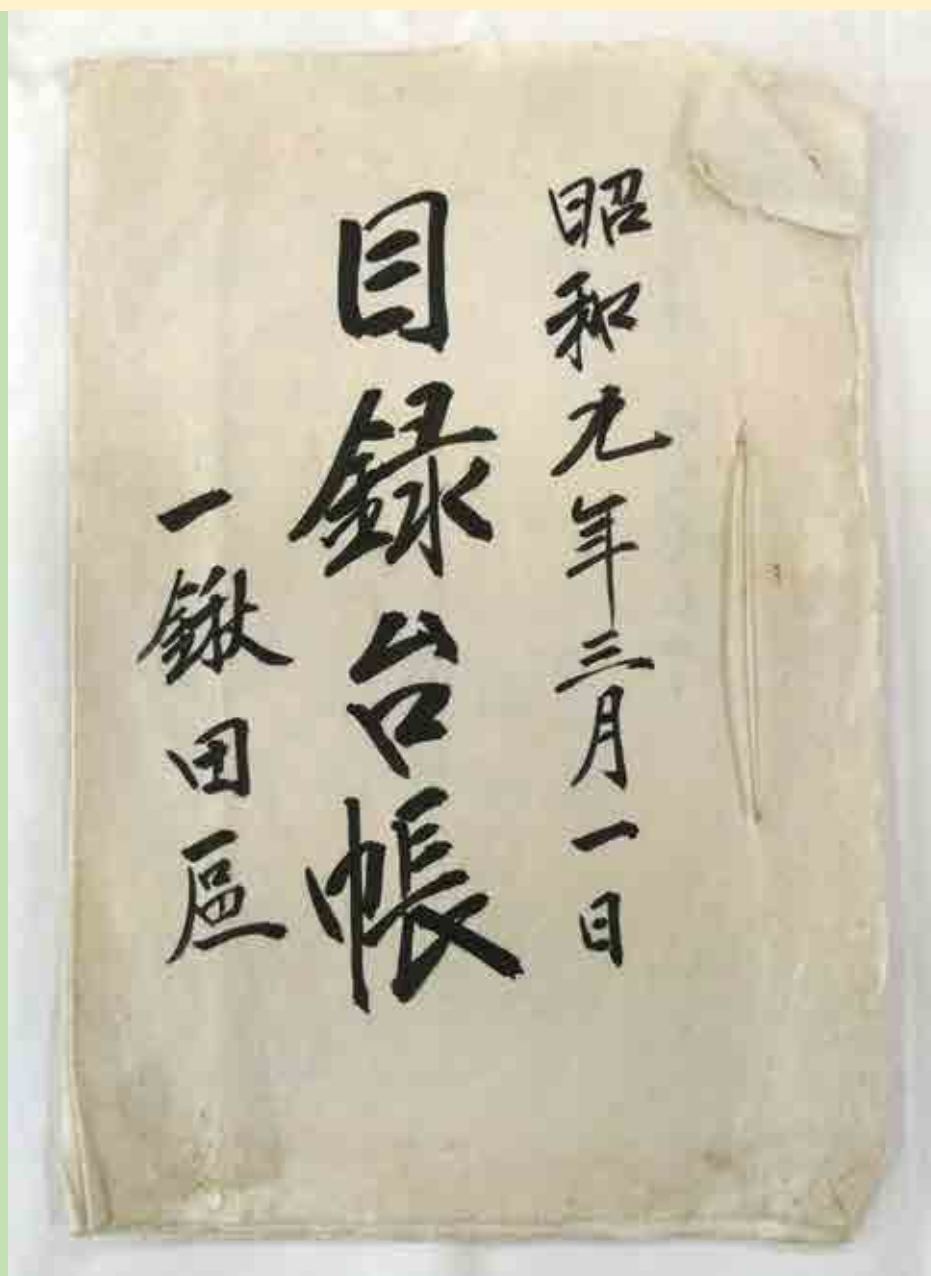 昭和九年三月一日
目録台帳
一鍬田區